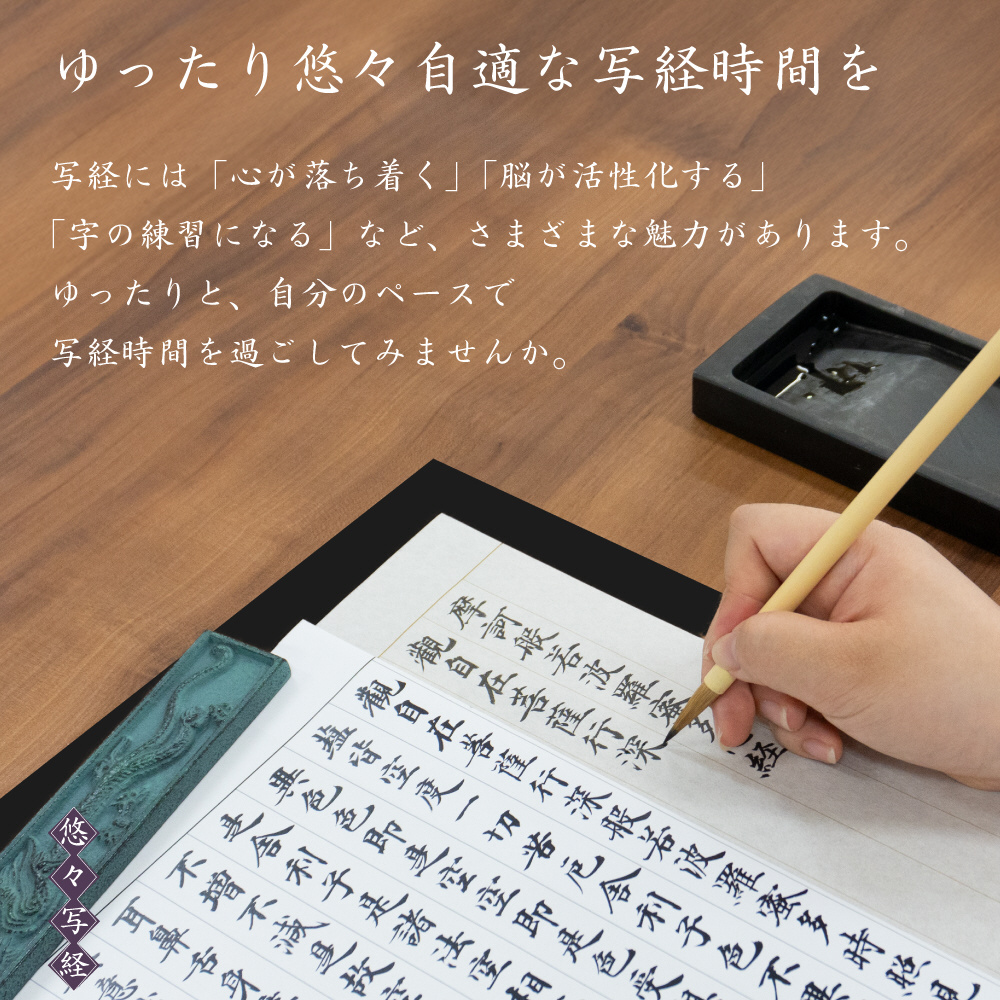 ゆったり悠々自適な写経時間を
写経には「心が落ち着く」「脳が活性化する」
「字の練習になる」など、さまざまな魅力があります。
ゆったりと、自分のペースで
写経時間を過ごしてみませんか。
摩訶般若波羅蜜多経
觀自在菩薩行深
觀自在菩薩行深般若波羅蜜多時照見
蘊皆空度一切苦厄舍利子色不異
異色色即是空空即是色受
是舍利子是諸法空相
不增不減是故
耳鼻舌身
意
悠々写経